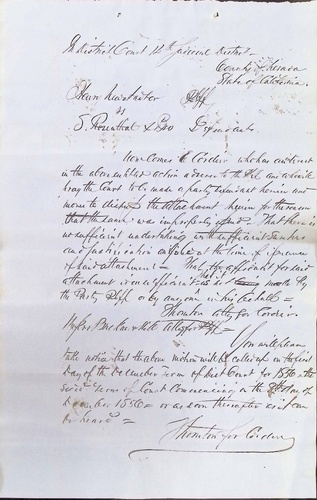 In District Court 14th Judicial District
County of
State of California
Plff
vs
S. Rosenthal & Bro Defendants
Now comes Cordier who has
in the above entitled action adverse to the Plff and
pray the Court to be made a party herein and
moves to the attachment herein for the reason
that the same was improperly That there is
not sufficient undertaking with sufficient Sureties
and justification on file at the time of issuance
of said attachment = The affidavit for said
attachment is insufficient is not made by
the Party Plff or by any one in his behalf =
Thornton atty for Cordier
Messrs & attys for Plff =
You will please
take notice that the above motion will be called up on the first
day of the December Term of said Court for 1856 = the
said Term of Court Commencing on the day of
December 1856 = or as soon thereafter as it can
be heard =
Thornton for Cordier